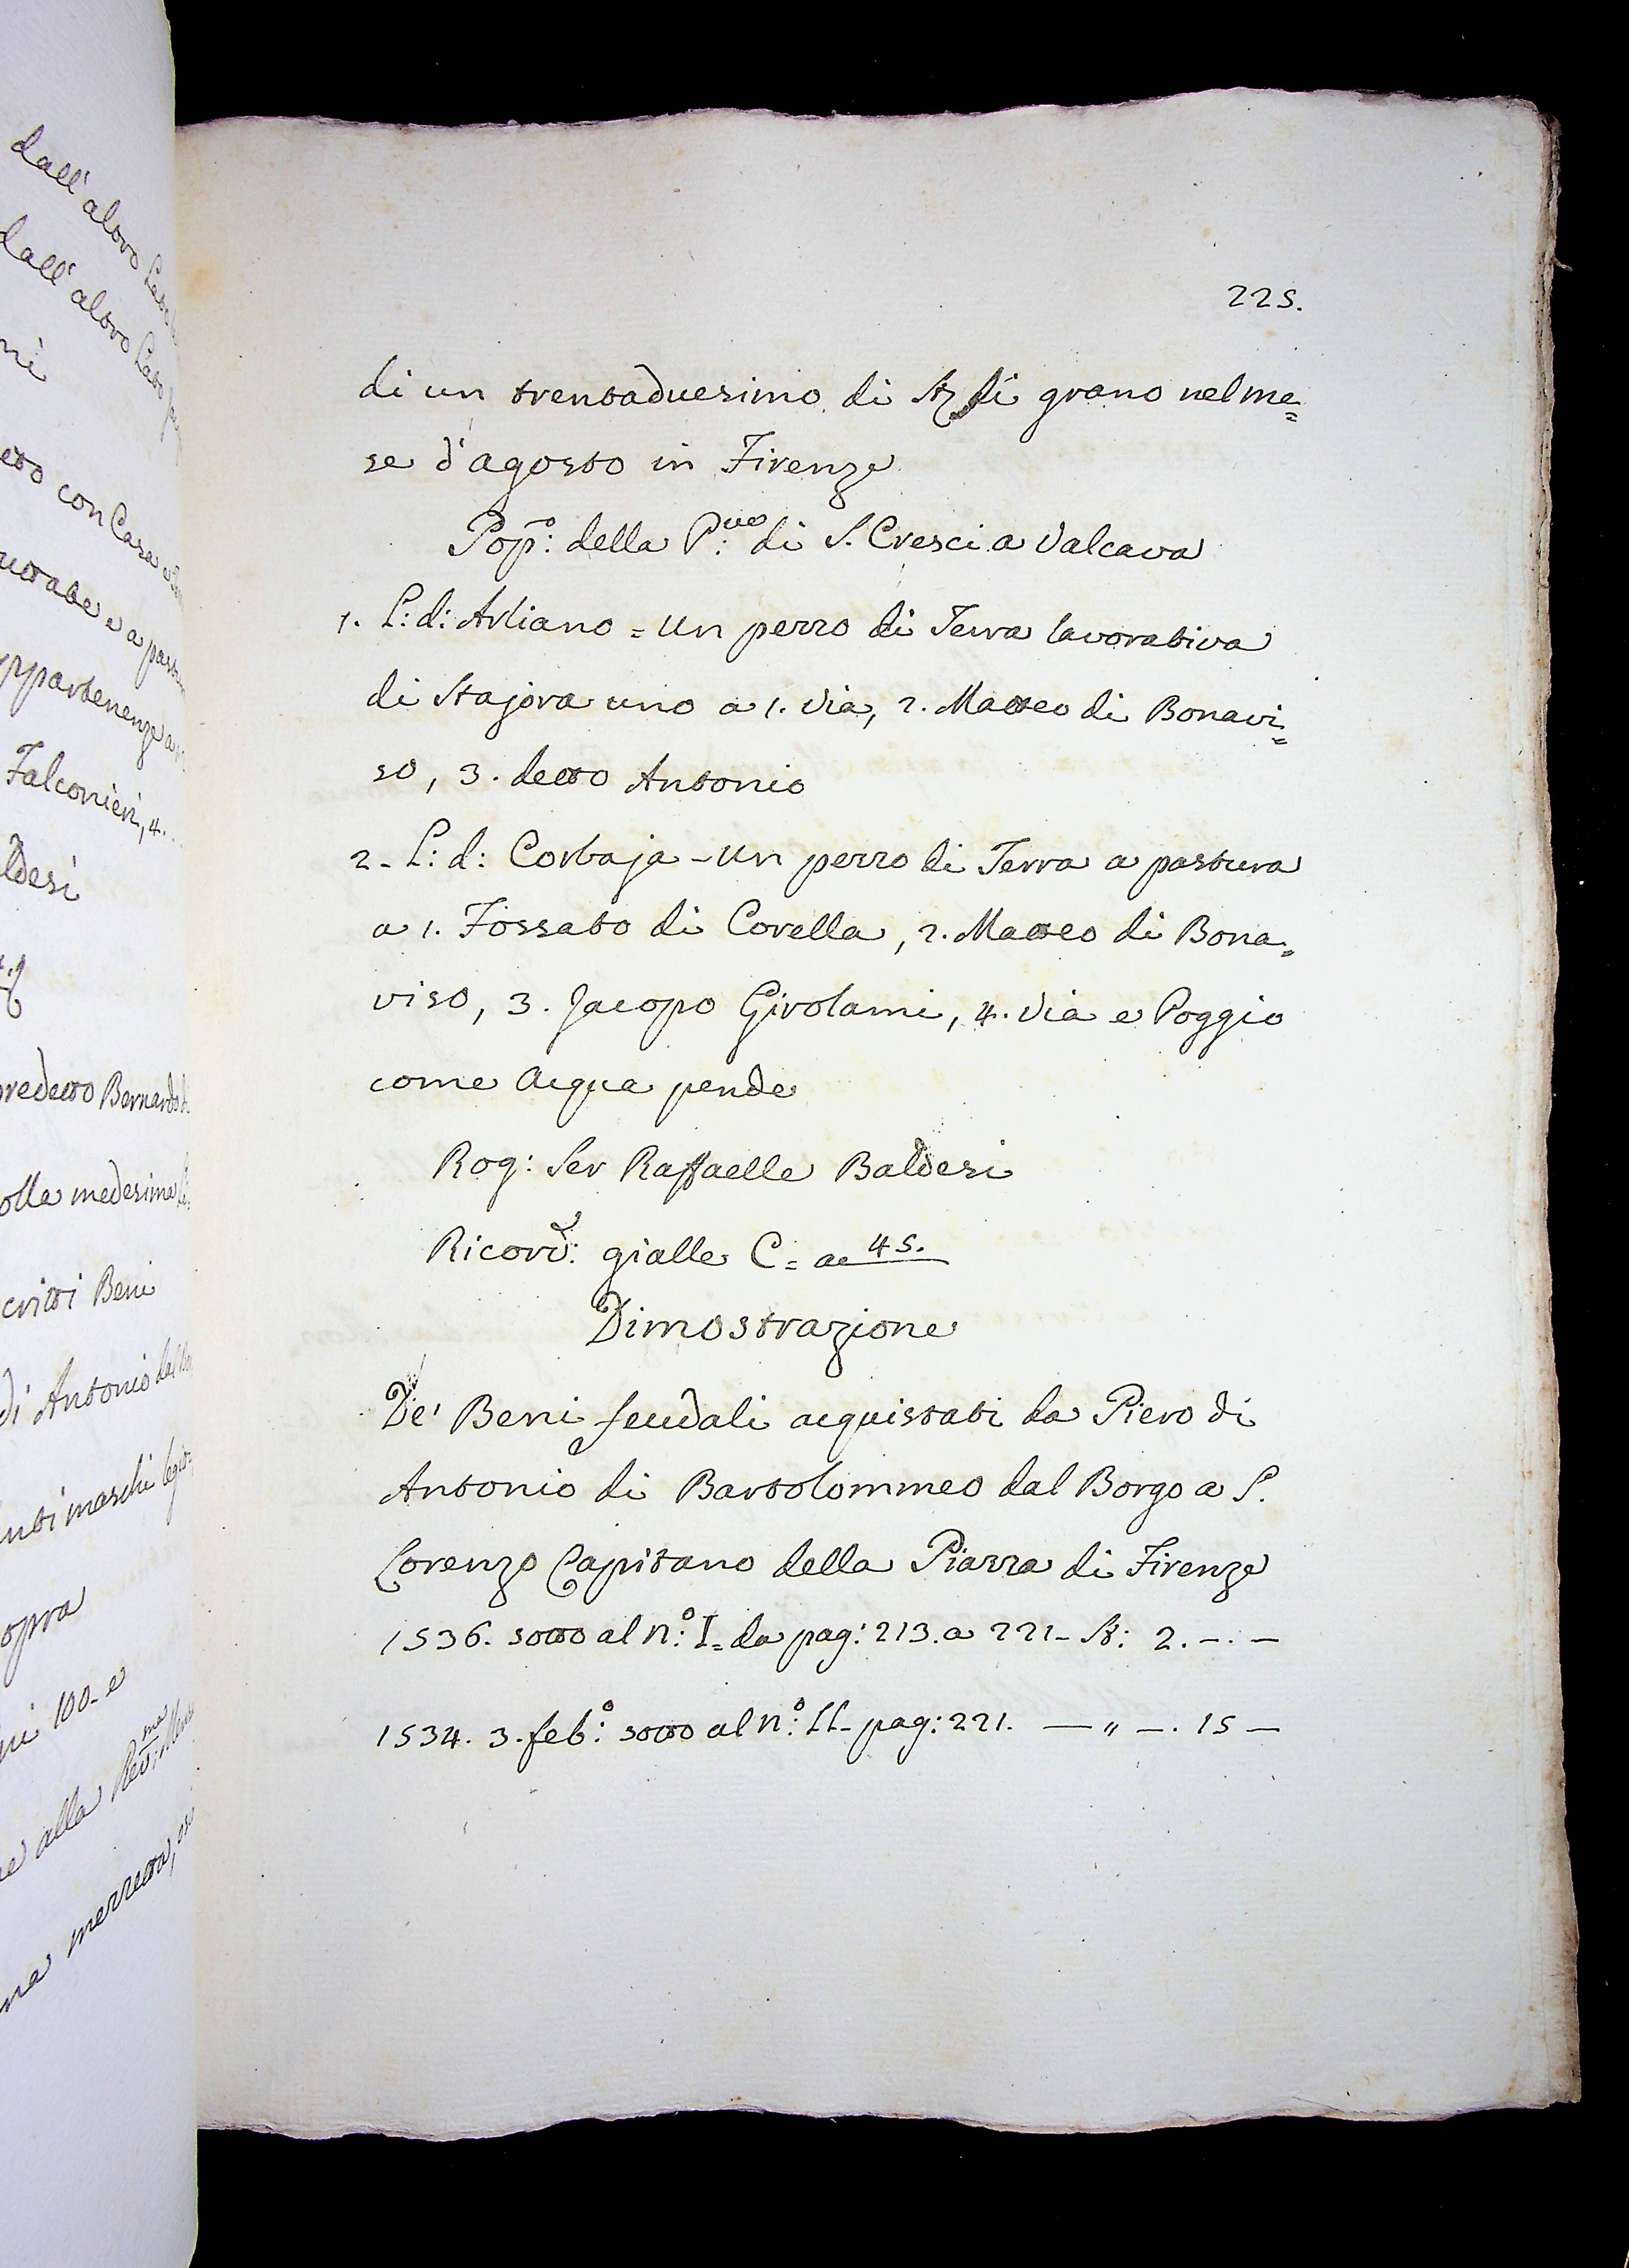 225.
di un trentaduesimo di St di grano nel me=
se d'agosto in Firenze
Pop:º della P:ve di S. Cresci a Valcava
1. L: d: Arliano = Un pezzo di Terra lavorativa
di Stajora uno a 1. Via, 2. Matteo di Bonavi=
so, 3. detto Antonio
2 - L: d: Corbaja - Un pezzo di Terra a pastura
a 1. Fossato di Corella, 2. Matteo di Bona=
viso, 3. Jacopo Girolami, 4. Via e Poggio
come Acqua pende
Rog: Ser Raffaelle Baldesi
Ricord: gialle C = a 45.
Dimostrazione
De' Beni feudali acquistati da Piero di
Antonio di Bartolommeo dal Borgo a S.
Lorenzo Capitano della Piazza di Firenze
1536. sotto al N:º I = da pag: 213. a 221 - St: 2. - . -
1534. 3. feb:º sotto al N:º II - pag: 221. — " - . 15 -
dall' altro Lato
dall' altro Lato
ni
etto con Casa
a
appartenenze
Falconieri, 4.
ldesi
predetto Bernardo
olla medesima
critti Beni
di Antonio dal
nti maschi
opra
ni 100 - e
e alla Rev:ma
na mezzetta,